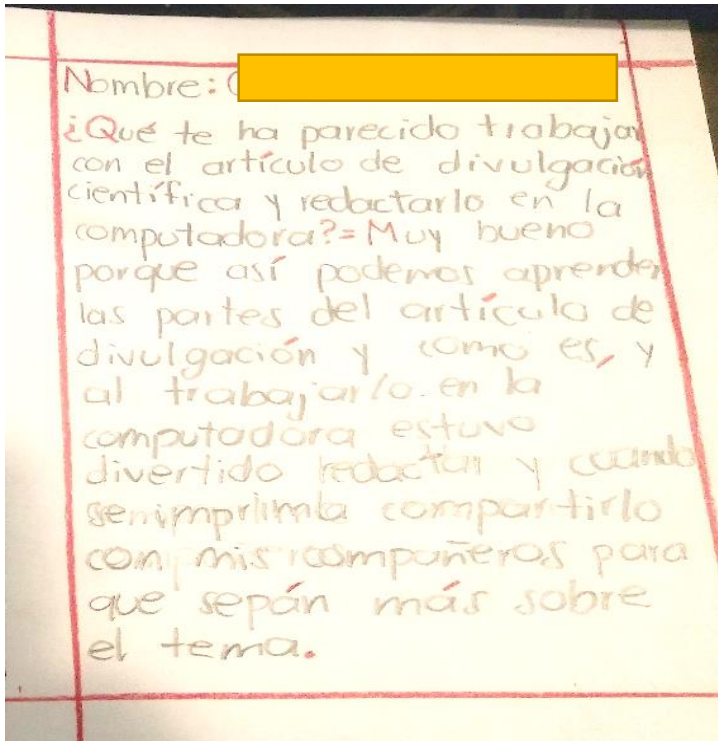 Nombre: (
¿Qué te ha parecido trabajar
con el artículo de divulgación
científica y redactarlo en la
computadora?= Muy bueno
porque así podemos aprender
las partes del artículo de
divulgación y como es, y
al trabajarlo. en la
computadora estuvo
divertido redactar y cuando
compartirlo
con mis compañeros para
que sepán más sobre
el tema.